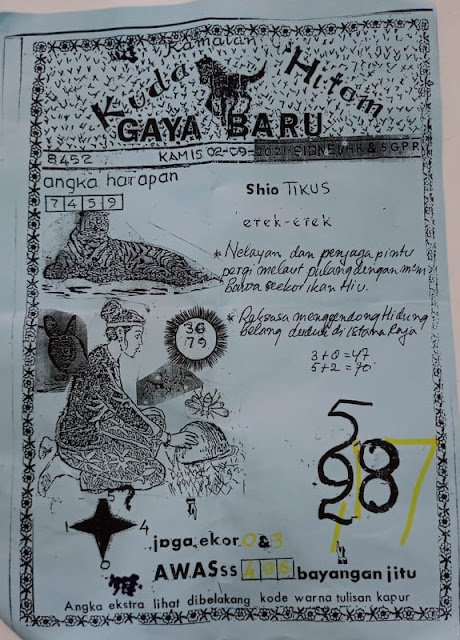 Ramalan
Kuda Hitam
GAYA BARU
8452 KAMIS 02-09-2021 SIDNEY HK & SGPR
angka harapan
7459
Shio TIKUS
erek-erek
* Nelayan dan penjaga pintu
pergi melaut pulang dengan mem
Bawa seekor ikan Hiu.
* Raksasa menggendong Hidung
belang duduk di istana Raja
36
79
3+0=47
5+2=90
5
298
7
1 4
jaga ekor 0 & 3
AWASss 496 bayangan jitu
Angka ekstra lihat dibelakang kode warna tulisan kapur